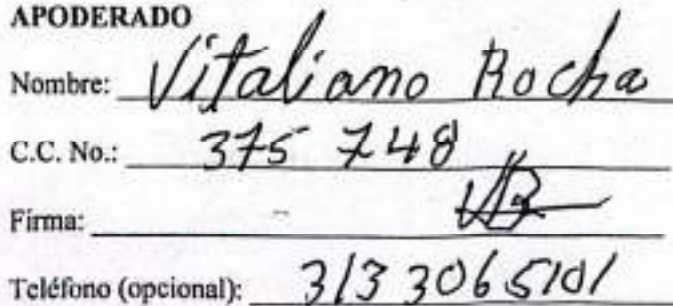 APODERADO
Nombre: Vitaliano Rocha
C.C. No.: 375 748
Firma:
Teléfono (opcional): 313 3065101